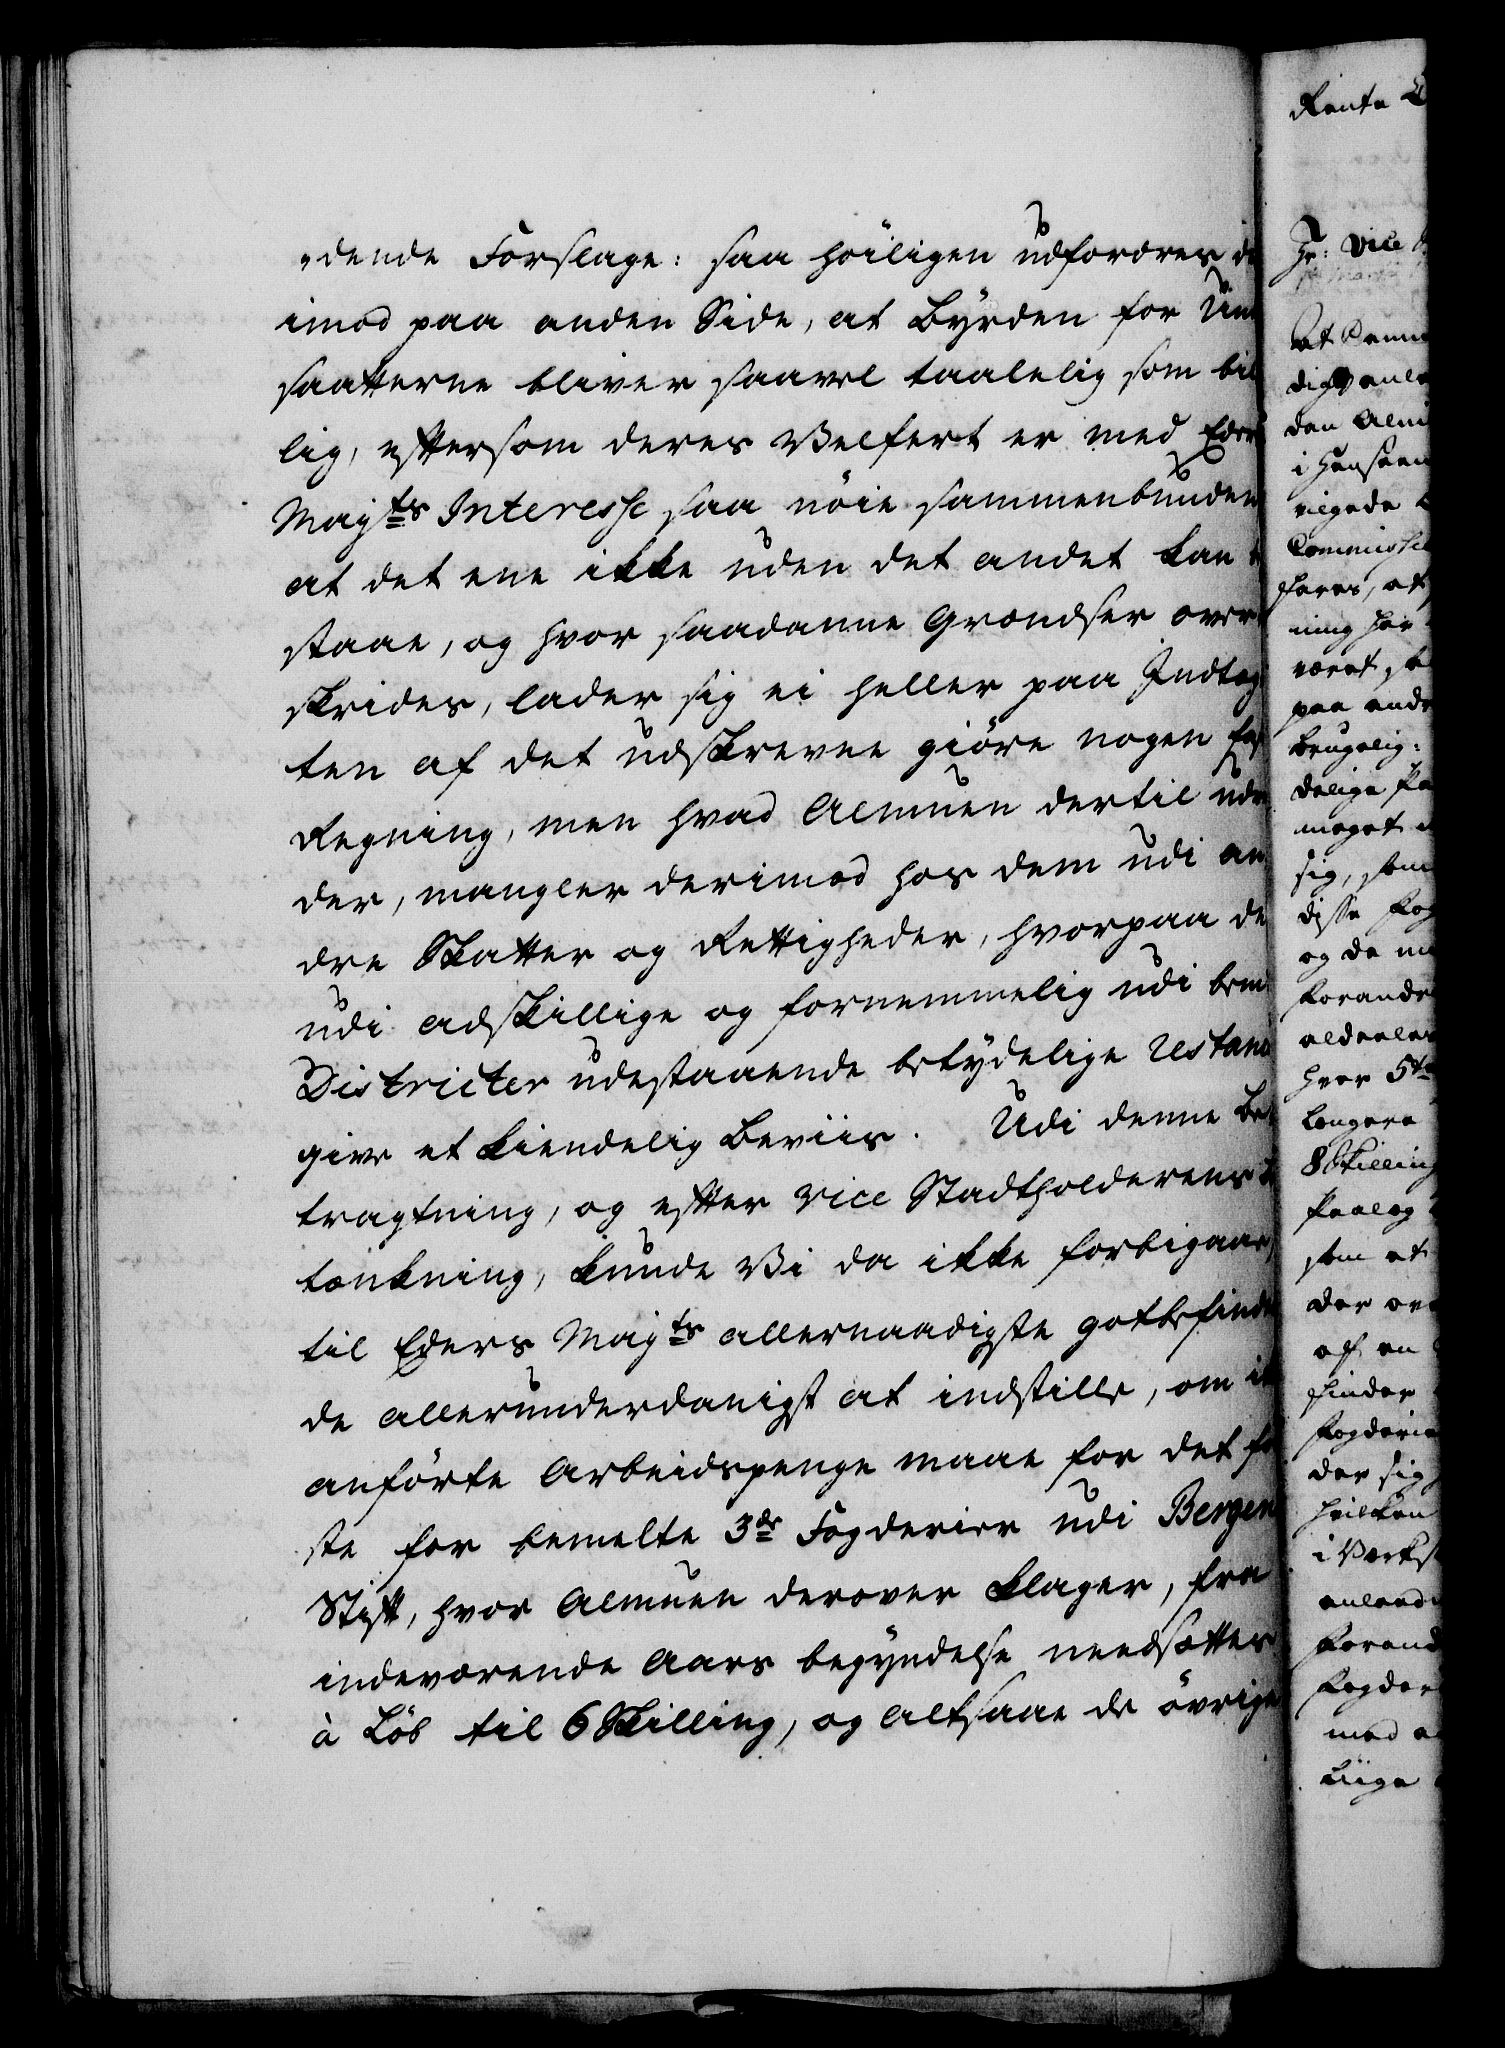 dende Forslage: saa höiligen udfordres de
imod paa anden Side, at Byrden for Un
saatterne bliver saavel taalelig som bil
lig, eftersom deres Velfert er med Eders
Majts Interesse saa nöie sammenbunden
at det ene ikke uden det andet kan
staae, og hvor saadanne Grændser over
skrides, lader sig ei heller paa Indtæg
ten af det udskrevne giöre nogen fast
Regning, men hvad Almuen dertil udre
der, mangler derimod hos dem udi an
dre Skatter og Rettigheder, hvorpaa de
udi adskillige og fornemmelig udi bem
Districter udestaaende betydelige Restanc
give et kiendelig Beviis. Udi denne Be
tragtning, og efter Vice Stadtholderens
tænkning, kunde Vi da ikke forbigaae,
til Eders Majts allernaadigste gotbefinden
de allerunderdanigst at indstille, om
anförte Arbeidspenge maae for det för
ste for bemelte 3de Fogderier udi Bergen
Stift, hvor Almuen derover klager, fra
indeværende Aars begyndelse needsættes
à Löb til 6 Skilling, og Altsaae de övrige
Rente
Hr: Vice
at
den Alm
i
Commissi
ning
været
paa andr
brugelig:
delige
meget
sig, som
disse Fog
og de
Forandr
aldeeles
hver 5te
Længere
8 Skilling
Paalæg
som et
der
af en
Fogderie
der sig
hvilken
i Værks
Forand
Fogder
med
Liige